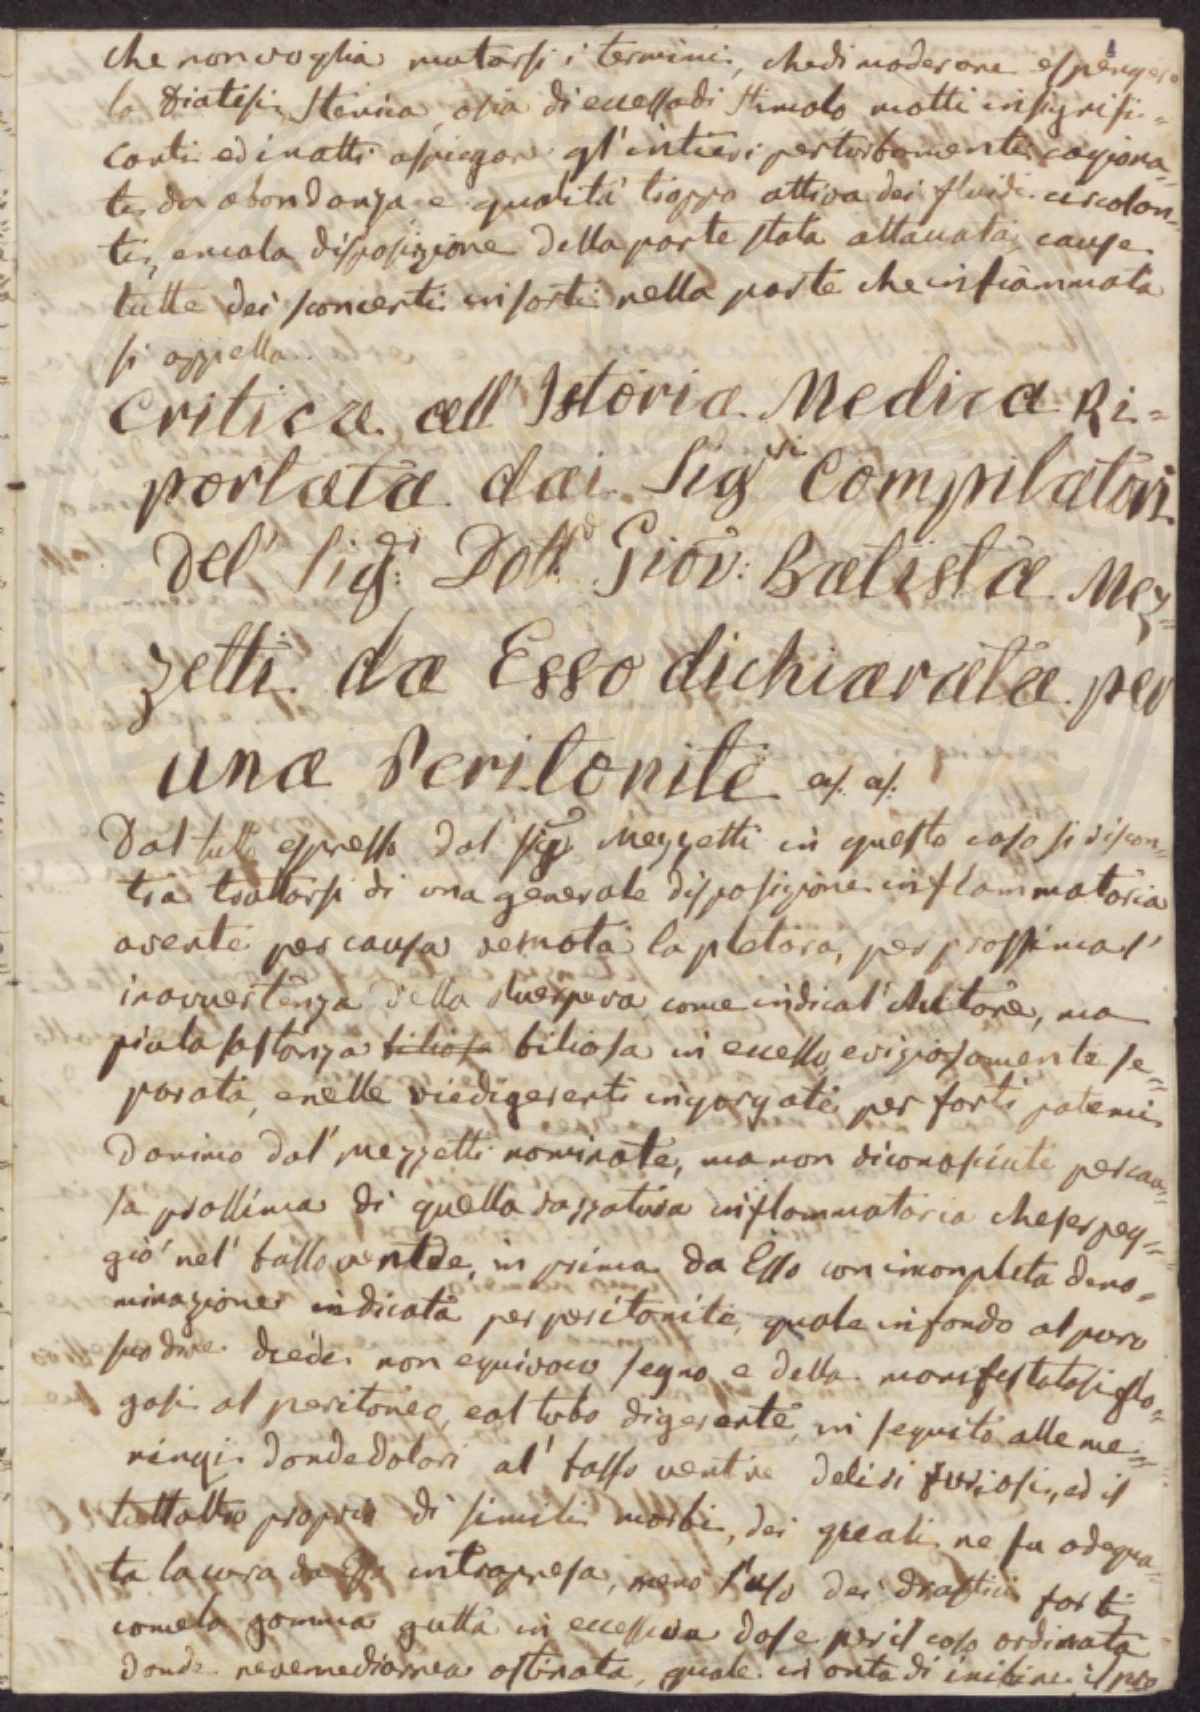 che non voglia mutarsi i termini, che di moderare e spengere
la Diatesi Stenica, osia di eccesso di stimolo motti insignifi=
canti ed inatti a spiegare gl'intieri perturbamenti cagiona=
ti da abondanza e qualità troppo attiva dei fluidi circolan=
ti, e mala disposizione della parte stata attaccata, cause
tutte dei sconcerti insorti nella parte che infiammata
si appella.
Critica all' Istoria Medica Ri=
portata dai Sig.ri Compilatori
Del' Sig.r Dott. Giov: Batista Mez=
zetti da Esso dichiarata per
una Peritonite
Dal tutto espresso dal Sig. Mezzetti in questo caso si riscon=
tra trattarsi di una generale disposizione inflammatoria
avente per causa remota la pletora, per prossima l'
inavvertenza della Puerpera come indica l'Autore, ma
più la sostanza biliosa biliosa in eccesso, e viziosamente se=
parata, e nelle vie digerenti ingorgate per forti patemi
d'animo dal' Mezzetti nominate, ma non riconosciute per cau=
sa prossima di quella razzatura inflammatoria che serpeg=
giò nel' basso ventre, in prima da Esso con incompleta deno=
minazione indicata per peritonite, quale in fondo al puro
suo dire diede non equivoco segno e della manifestatasi flo=
gosi al peritoneo, e al tubo digerente, in seguito alle me=
ningi donde dolori al' basso ventre deliri furiosi, ed il
tuttaltro proprio di simili morbi, dei quali ne fu adequa=
ta la cura da Esso intrapresa, meno l'uso dei drastici forti
come la gomma gutta in eccessiva dose per il caso ordinata
donde ostinata, quale in onta di inibire il pro